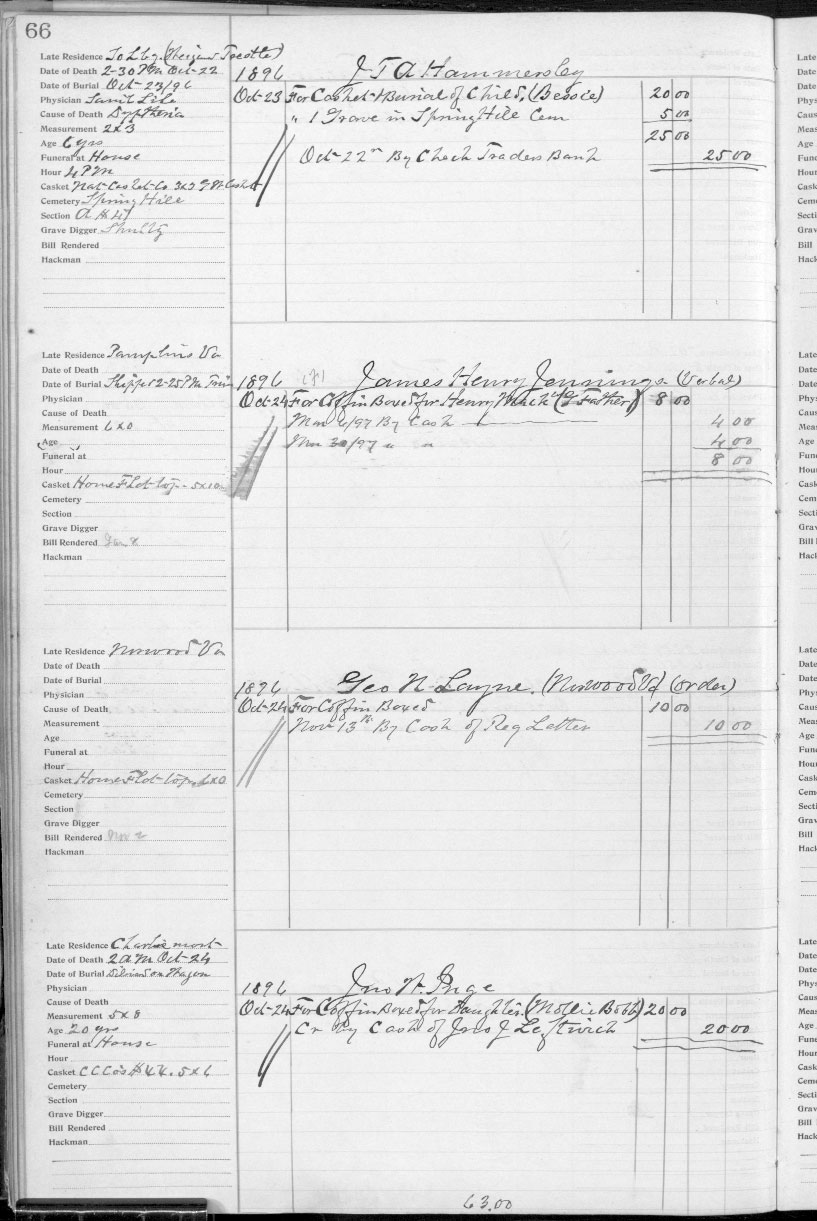 66
Late Residence
Date of Death 2-30 PM Oct-22
Date of Burial Oct-23/96
Physician
Cause of Death Dyptheria
Measurement 2x3
Age 6 yrs
Funeral at House
Hour 4 PM
Casket Nat-Casket-Co
Cemetery Spring Hill
Section
Grave Digger
Bill Rendered
Hackman
1896 J T A Hammersley
Oct-23 For Casket & Burial of Child, (Bessie) 20 00
" 1 Grave in Spring Hill Cem 5 00
25 00
Oct-22nd By Check Traders Bank 25 00
Late Residence Pamplins Va
Date of Death
Date of Burial Shipped 2-25 PM Train
Physician
Cause of Death
Measurement 6x0
Age
Funeral at
Hour
Casket Home Flat-top
Cemetery
Section
Grave Digger
Bill Rendered
Hackman
1896 James Henry Jennings (Verbal)
Oct-24 For Coffin Boxed for Henry (G Father) 8 00
Mar 6/97 By Cash 4 00
Mar 30/97 " " 4 00
8 00
Late Residence Norwood Va
Date of Death
Date of Burial
Physician
Cause of Death
Measurement
Age
Funeral at
Hour
Casket Home Flat-top 6x0
Cemetery
Section
Grave Digger
Bill Rendered Nov 2
Hackman
1896 Geo N Layne. (Norwood Va) (order)
Oct-24 For Coffin Boxed 10 00
Nov 13th By Cash of Reg Letter 10 00
Late Residence Charliemont
Date of Death 2 am Oct-24
Date of Burial on Wagon
Physician
Cause of Death
Measurement 5x8
Age 20 yrs
Funeral at House
Hour
Casket CCCo's #44. 5x6
Cemetery
Section
Grave Digger
Bill Rendered
Hackman
1896 Jno W. Inge
Oct-24 For Coffin Boxed for Daughter. (Mollie Bobb) 20 00
Cr By Cash of Jno J Leftwich 20 00
63.00